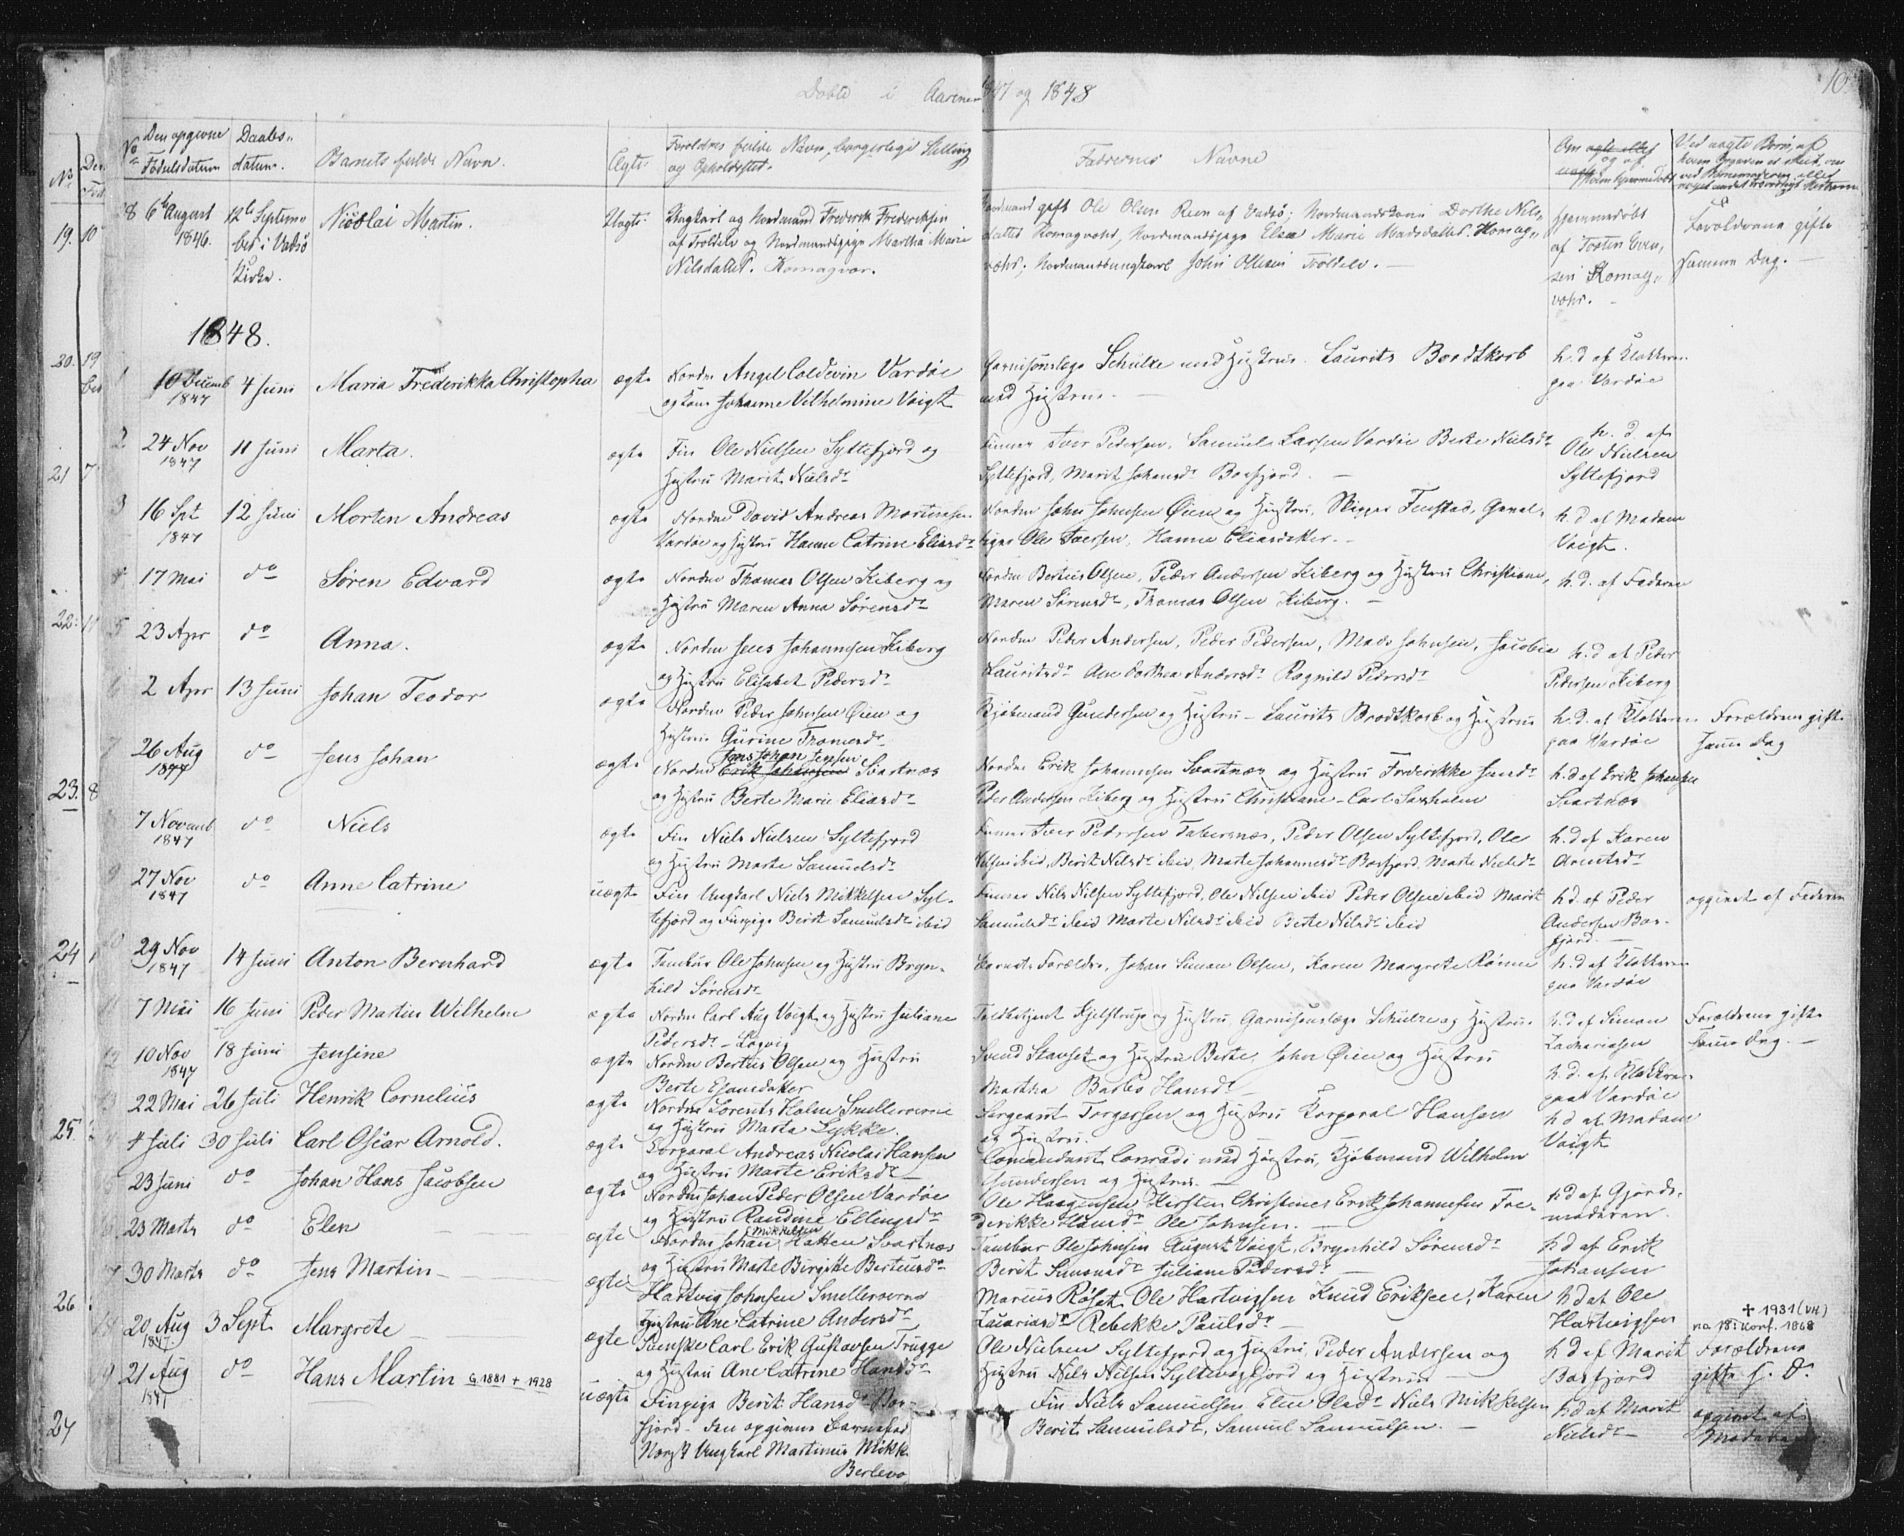 Døbte i Aarene 1847 og 1848
10
No
Den opgivne Fødselsdatum
Daabs-datum.
Barnets fulde Navn.
Ægte
Forældres fulde Navn, borgerlige Stilling og Opholdsted.
Faddernes Navne
Om ægte eller og af hvem hjemmedøbt
28 6te August 1846.
12te Septembr i Vadsø Kirke.
Nicolai Martin.
Uægte
Ungkarl og Nordmand Frederik Frederiksen
af Troldelv og Nordmandspige Martha Marie
Nilsdatter. Komagvær.
Nordmand gift Ole Olsen Reen af Vadsø; Nordmandskone Dorthe Nils-
datter Komagvahr, Nordmandspige Elen Marie Madsdatter Komag-
vahr; Nordmandsungkarl John Ollesen Troldelv. —
hjemmedøbt
af Torsten Even-
sen Komag-
vahr. —
Forældrene gifte
samme Dag. —
1848.
1 10 Decemb 1847
4 Juni
Maria Frederikka Christopha
ægte
Nordm Angel Coldevin Vardøe
og Kone Johanne Vilhelmine Voigt
Garnisonslæge Schulze med Hustrue. Laurits Brodtkorb
med Hustrue. —
h. d af Klokkeren
paa Vardøe
2 24 Nov 1847
11 Juni
Marta.
ægte
Fin Ole Nielsen Syltefjord og
Hustru Marit Nielsdr
Finner Iver Pedersen, Samuel Larsen Vardøe Berte Nielsdr
Syltefjord, Marit Johansdr Baasfjord. —
h. d. af
Ole Nielsen
Syltefjord
3 16 Spt 1847
12 Juni
Morten Andreas
ægte
Nordm David Andreas Mortensen
Vardøe og Hustru Hanna Catrine Eliasdr
Nordm John Johnsen Øien og Hustru, Skipper Finstad,
Ole Iversen, Hanna Eliasdatter. —
h. d af Madam
Voigt.
4 17 Mai
do
Søren Edvard
ægte
Nordm Thomas Olsen Kiberg og
Hustru Maren Anna Sørensdr
Nordm Bertius Olsen, Peder Andersen Kiberg og Hustru Christiane,
Maren Sørensdr, Thomas Olsen Kiberg. —
h. d. af Faderen
5 23 Apr
do
Anna.
ægte
Nordm Jens Johannesen Kiberg
og Hustru Elisabet Pedersdr
Nordm Peder Andersen, Peder Pedersen, Mads Johnsen, Jacobia
Lauritsdr Ane Dorthea Andersdr Ragnild Pedersdr
h. d af Peder
Pedersen Kiberg
6 2 Apr
13 Juni
Johan Teodor
ægte
Nordm Peder Johnsen Øien og
Hustru Gurine Tromesdr
Kjøbmand Gundersen og Hustru — Laurits Brodtkorb og Hustru
h. d. af Klokkeren
paa Vardøe
Forældrene gifte
samme Dag
7 26 Aug 1847
do
Jens Johan
ægte
Jens Johan Jensen
Nordm Erik Johansen Svartnæs
og Hustru Berte Marie Eliasdr
Nordm Erik Johannesen Svartnæs og Hustru Frederikke Jensdr
Peder Andersen Kiberg og Hustru Christiane — Carl Saxholm
h. d af Erik Johansen
Svartnæs
7 Novemb 1847
do
Niels
ægte
Fin Niels Nielsen Syltefjord
og Hustru Marte Samuelsdr
Finner Iver Pedersen Tabersnæs, Peder Olsen Syltefjord, Ole
Nilsen ibid, Berit Nilsdr ibid, Marte Johannesdr Baasfjord Marte Nielsdr
h. d af Karen
Arentsdr
9 27 Nov 1847
do
Anne Catrine
uægte
Fin Ungkarl Niels Mikkelsen Syl-
tefjord og Finpige Berit Samuelsdr ibid
Finner Nils Nilsen Syltefjord, Ole Nilsen ibid Peder Olsen ibid Marit
Samuelsdr ibid Marte Nilsdr ibid Berte Nilsdr ibid
h. d. af Peder
Andersen Baas-
fjord. —
opgivet af Faderen
10 29 Nov 1847
14 Juni
Anton Bernhard
ægte
Tambur Ole Johnsen og Hustru Bryn-
hild Sørensdr
Barnets Forældre, Johan Simon Olsen, Karen Margrete Rønne
h. d af Klokkeren
paa Vardøe
11 7 Mai
16 Juni
Peder Martin Wilhelm
ægte
Nordm Carl Aug Voigt og Hustru Juliane
Pedersdr — Løgvig
Toldbetjent Kjelstrup og Hustru, Garnisonslæge Schulze og Hustru.
h. d af Simon
Zachariasen
Forældrene gifte
samme Dag. —
12 10 Nov 1847
18 Juni
Jensine
ægte
Nordm Bertus Olsen og Hustru
Berte Ejonsdatter
Svend Stanset og Hustru Berte, John Øien og Hustru
Martha Barbo Hansdr —
h. d. af Klokkeren
paa Vardøe
13 22 Mai
26 Juli
Henrik Cornelius
ægte
Nordm Lorents Holm Smellrorene
og Hustru Marta Lykke.
Sergeant Torgersen og Hustru Korporal Hansen
og Hustru.
h d af Madam
Voigt
4 Juli
30 Juli
Carl Oscar Arnold.
ægte
Corporal Andreas Nicolai Hansen
og Hustru Marte Eriksdr —
Comandant Conradi med Hustru, Kjøbmand Wilhelm
Gundersen og Hustru. —
23 Juni
do
Johan Hans Jacobsen
ægte
Nordm Johan Peder Olsen Vardøe
og Hustru Randine Ellingsdr
Ole Haagensen Kirsten Christines Erik Johannesen Fre-
derikke Hansdr Ole Johnsen. —
h d af Gjords-
moderen.
23 Marts
do
Elen
ægte
Nordm Johan (Mikkelsen) Hatten Svartnæs
og Hustru Marte Birgitte Berteusdr
Tambur Ole Johnsen August Voigt, Brynhild Sørensdr
Berit Simonsdr Juliane Pedersdr —
h d af Erik
Johansen
30 Marts
do
Jens Martin
ægte
Hartvig Johnsen Smellrorene
Hustru Ane Catrine Andersdr
Marcus Røset Ole Hartvigsen Knud Eriksen, Karen
Zacariasdr Rebekke Paulsdr —
h d af Ole
Hartvigsen
20 Aug 1847
3 Sept
Margrete
ægte
Svenske Carl Erik Gustavsen Trugge
og Hustru Ane Catrine Hansdr
Ole Nielsen Syltefjord og Hustru, Peder Andersen og
Hustru Nils Nilsen Syltevagfjord og Hustru —
h d af Marit
Baasfjord
+ 1931 (VH)
na 18: Konf. 1868
Forældrene
gifte s. D.
19 21 Aug 1847
do
Hans Martin G. 1881 + 1928
uægte
Finpige Berit Hansdr Baas-
fjord — den opgivne Barnefad
Norsk Ungkarl Martinus Mikk
Berlevo
Fin Niels Samuelsen Elen Olsdr Niels Mikkelsen
Berit Samuelsdr, Samuel Samuelsen. —
h. d af Marit
Nielsdr —
opgivet af
Moderen.
No
19. 10
20. 19
21 7
22. 11
23. 8
24 1
25
26
27